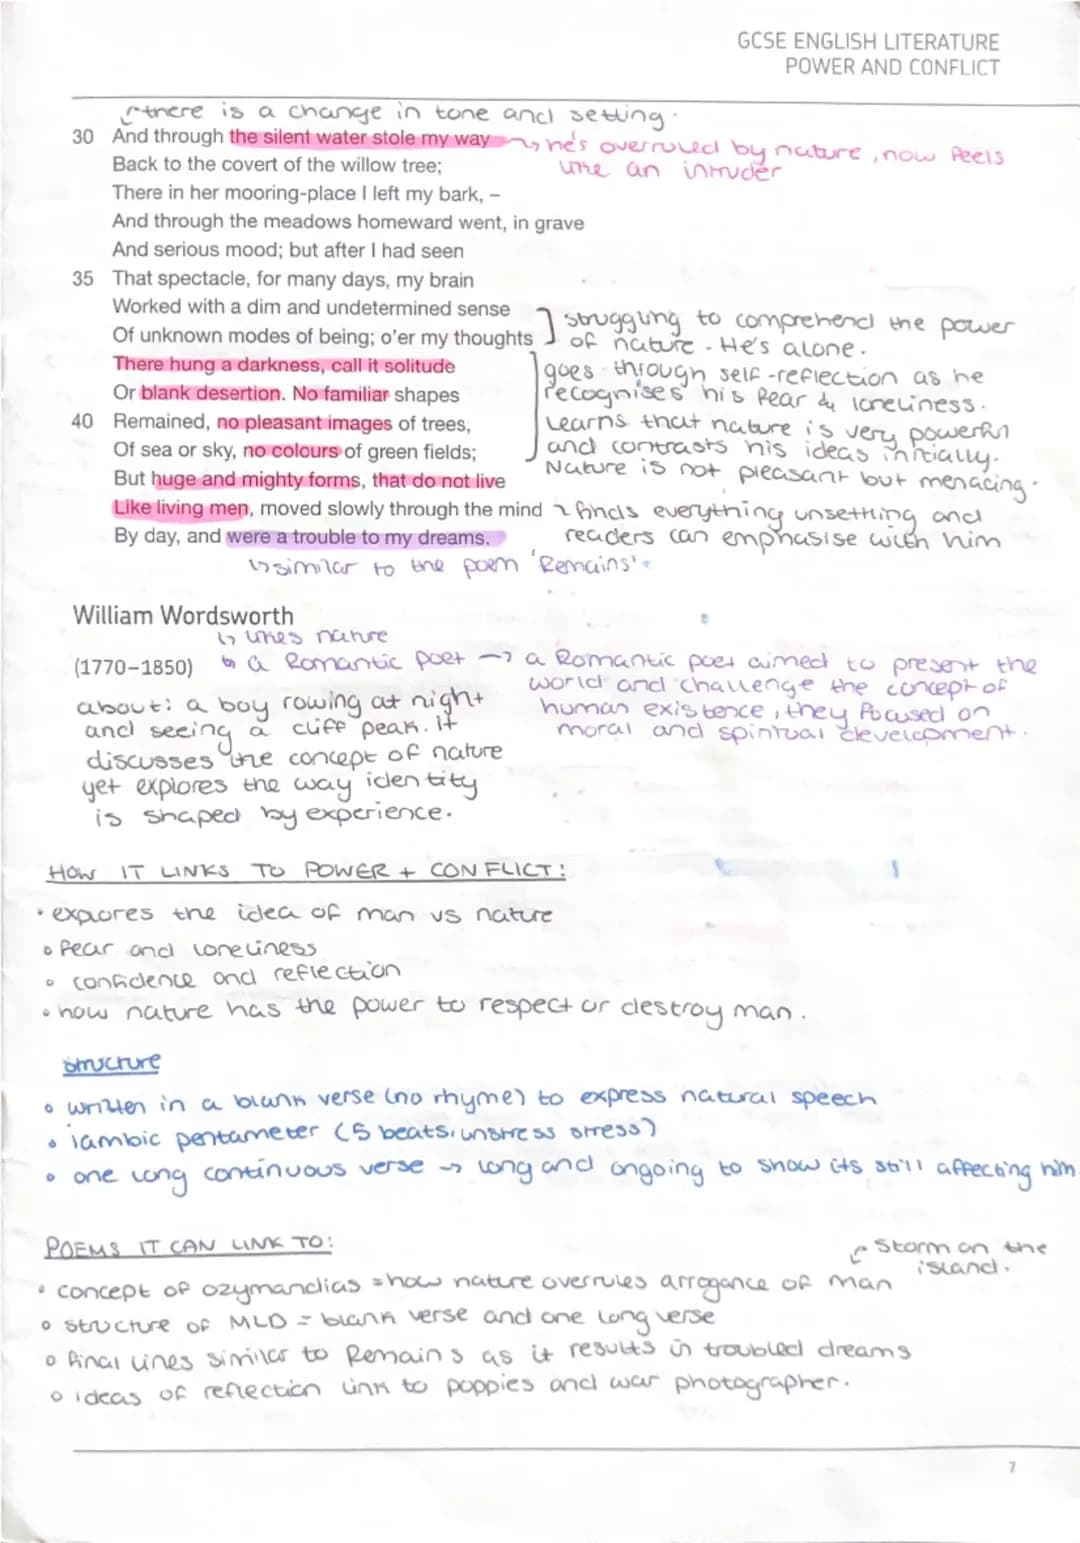 GCSE ENGLISH LITERATURE
POWER AND CONFLICT
there is a change in tone and setting.
30 And through the silent water stole my way
he's overruled by nature, now feels
like an intruder
Back to the covert of the willow tree;
There in her mooring-place I left my bark, –
And through the meadows homeward went, in grave
And serious mood; but after I had seen
35 That spectacle, for many days, my brain
Worked with a dim and undetermined sense
Of unknown modes of being; o'er my thoughts
struggling to comprehend the power
of nature. He's alone.
There hung a darkness, call it solitude
Or blank desertion. No familiar shapes
40 Remained, no pleasant images of trees,
Of sea or sky, no colours of green fields;
goes through self-reflection as he
recognises his fear & loneliness.
Learns that nature is very powerful
and contrasts his ideas initially.
Nature is not pleasant but menacing.
But huge and mighty forms, that do not live
Like living men, moved slowly through the mind
By day, and were a trouble to my dreams.
finds everything unsetting and
readers can emphasise with him
similar to the poem 'Remains'
William Wordsworth
likes nature
(1770–1850)
a Romantic poet → a Romantic poet aimed to present the
world and challenge the concept of
human existence, they focused on
moral and spiritual development.
about: a boy rowing at night
and seeing a cliff peak. It
discusses the concept of nature
yet explores the way identity
is shaped by experience.
HOW IT LINKS TO POWER + CONFLICT:
• explores the idea of man vs nature
• fear and loneliness
• confidence and reflection
• how nature has the power to respect or destroy man.
structure
• written in a blank verse (no rhyme) to express natural speech
• iambic pentameter (5 beats, unstress stress)
• one long continuous verse → long and ongoing to show its still affecting him
POEMS IT CAN LINK TO:
Storm on the
island.
• concept of ozymandias = how nature overrules arrogance of man
• structure of MLD = blank verse and one long verse
• final lines similar to Remains as it results in troubled dreams
• ideas of reflection link to poppies and war photographer.
7